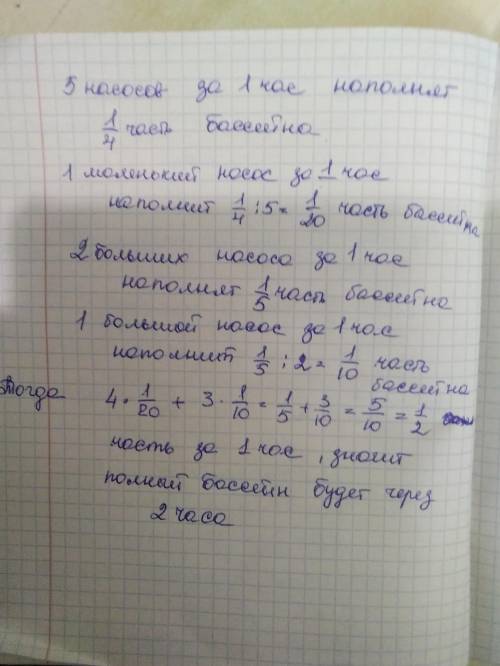 5 насосов за 1 час наполнят
1/4 часть бассейна
1 маленький насос за 1 час
наполнит 1/4 : 5 = 1/20 часть бассейна
2 больших насоса за 1 час
наполнят 1/5 часть бассейна
1 большой насос за 1 час
наполнит 1/5 : 2 = 1/10 часть
бассейна
Тогда 4 · 1/20 + 3 · 1/10 = 1/5 + 3/10 = 5/10 = 1/2
часть за 1 час, значит
полный бассейн будет через
2 часа